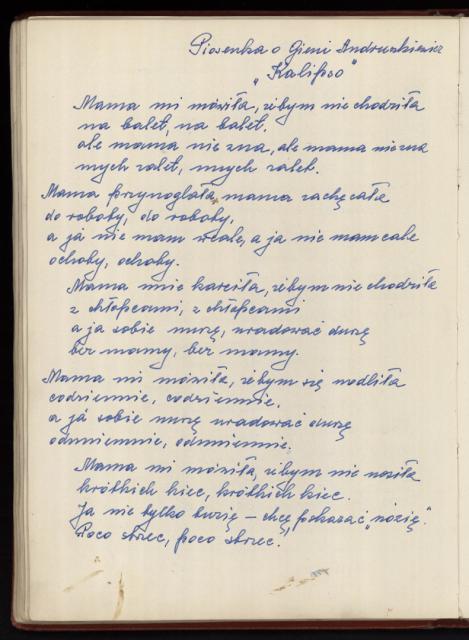 Piosenka o Gieni Andruszkiewicz
„Kalipso"
Mama mi mówiła, żebym nie chodziła
na balet, na balet.
ale mama nie zna, ale mama nie zna
mych zalet, mych zalet.
Mama przynaglała, mama zachęcała
do roboty, do roboty,
a já nie mam wcale, a ja nie mam cale
ochoty, ochoty.
Mama mnie karciła, żebym nie chodziła
z chłopcami, z chłopcami
a ja sobie muszę, uradować duszę
bez mamy, bez mamy.
Mama mi mówiła, żebym się modliła
codziennie, codziennie.
a já sobie muszę uradować duszę
odmiennie, odmiennie.
Mama mi mówiła, żebym nie nosiła
krótkich kiec, krótkich kiec.
Ja nie tylko buzię – chcę pokazać „nózię".
Poco strzec, poco strzec!